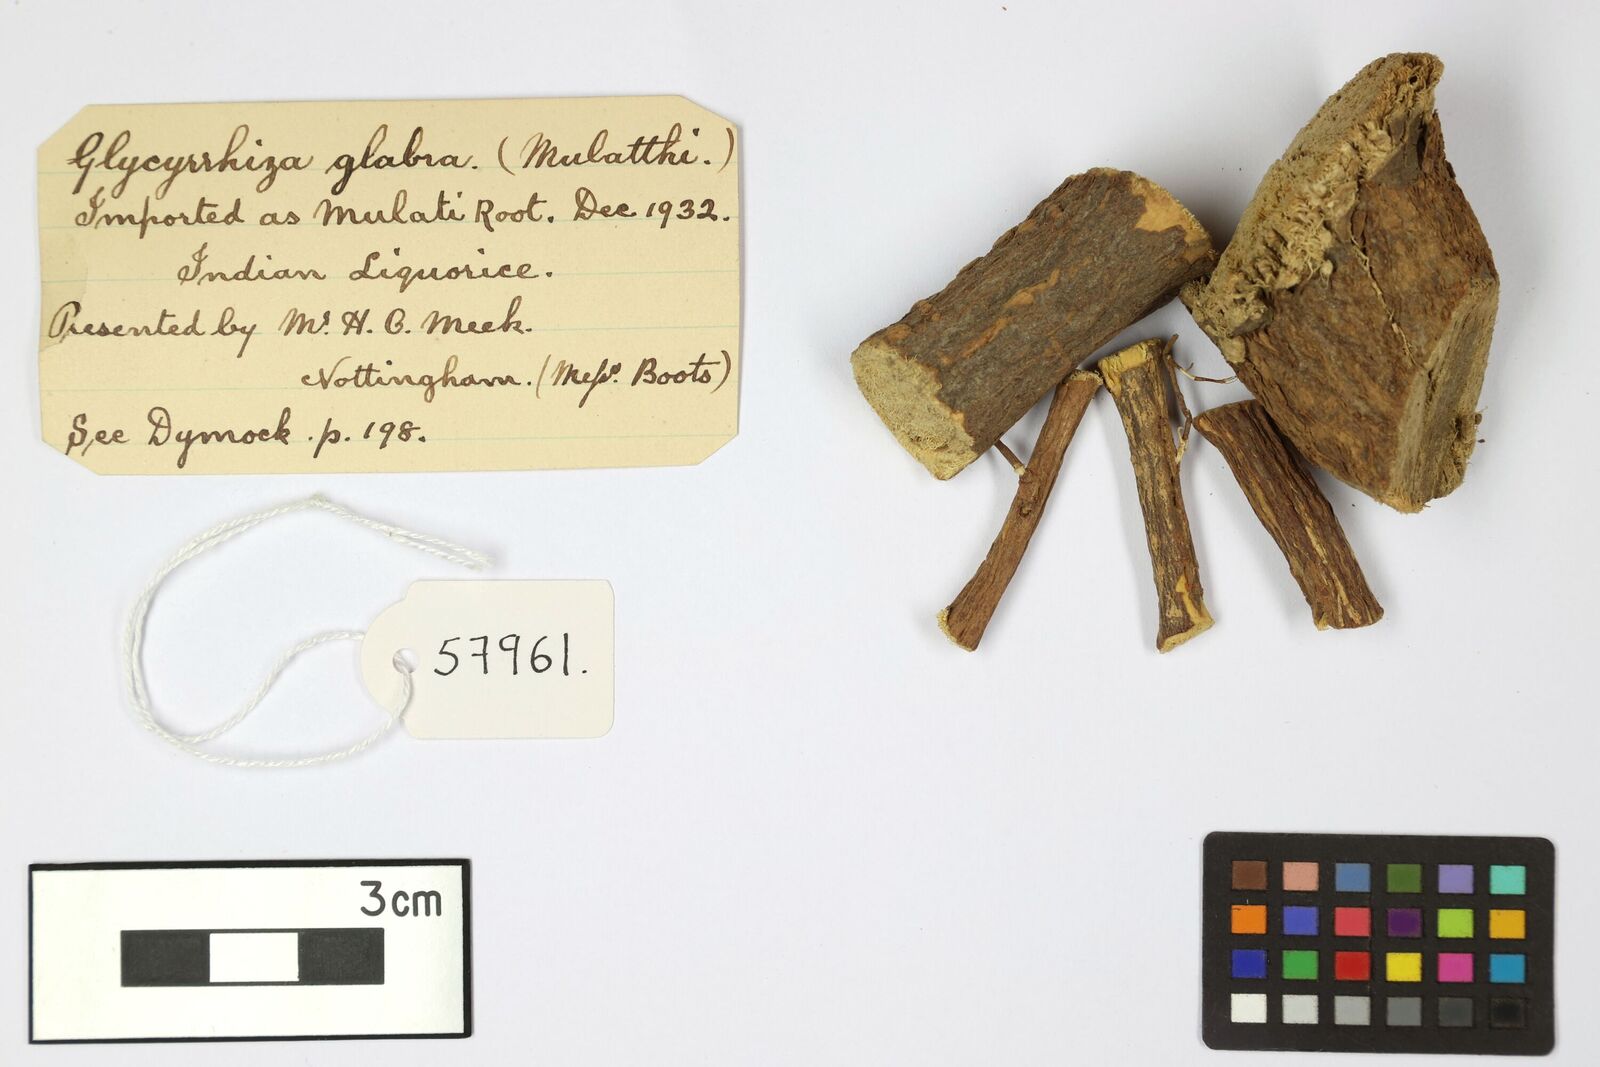 Glycyrrhiza glabra. (Mulatthi.)
Imported as Mulati Root. Dec 1932.
Indian Liquorice.
Presented by Mr. H. C. Meek.
Nottingham. (Messrs. Boots)
See Dymock. p. 198.
57961.
3cm